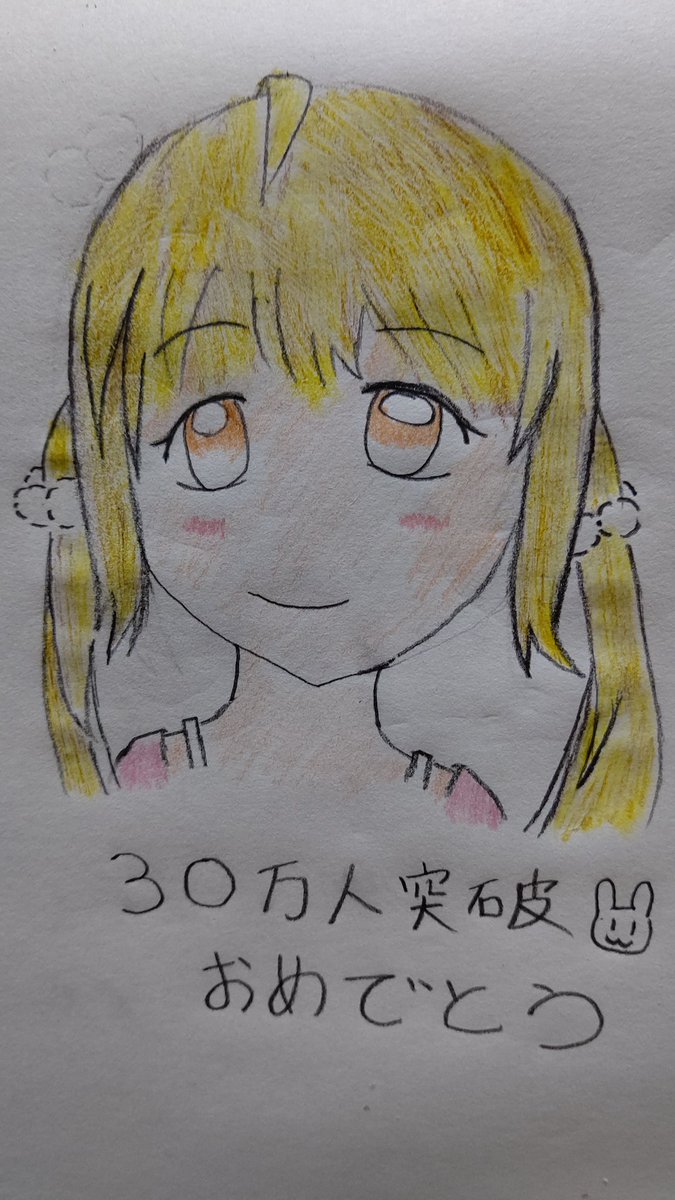 30万人突破
おめでとう